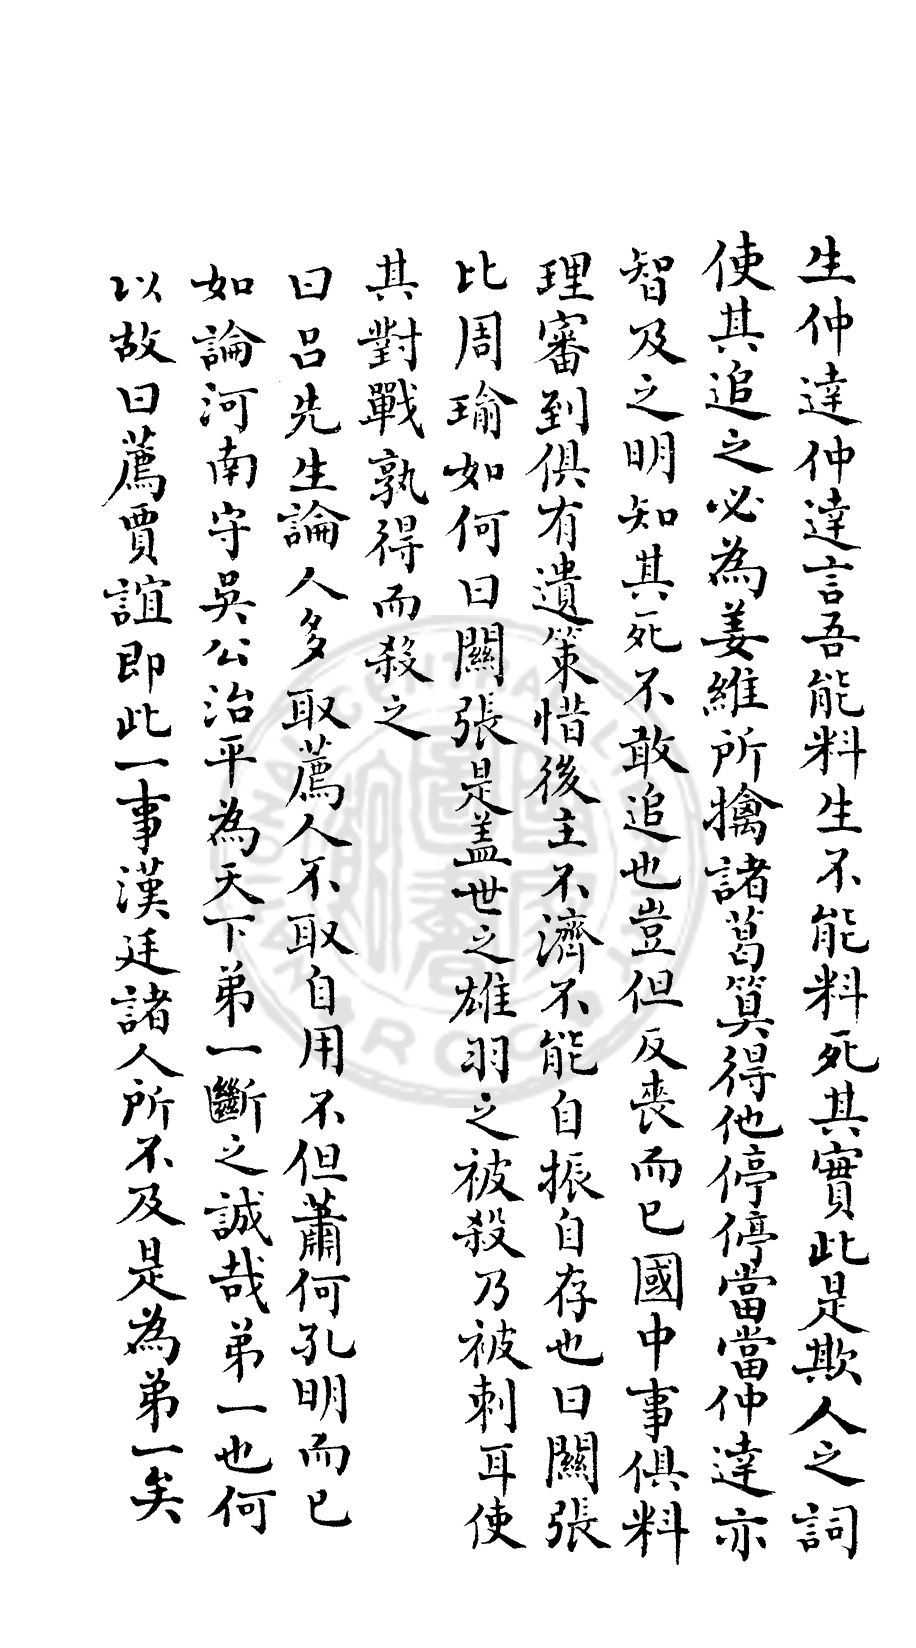 生仲達仲達言吾能料生不能料死其實此是欺人之詞
使其追之必為姜維所擒諸葛算得他停停當當仲達亦
智及之明知其死不敢追也豈但反喪而已國中事俱料
理審到俱有遺策惜後主不濟不能自振自存也曰關張
比周瑜如何曰關張是盖世之雄羽之被殺乃被刺耳使
其對戰孰得而殺之
曰呂先生論人多取薦人不取自用不但蕭何孔明而已
如論河南守吳公治平為天下弟一斷之誠哉弟一也何
以故曰薦賈誼即此一事漢廷諸人所不及是為弟一矣